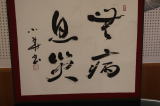 無病
息災